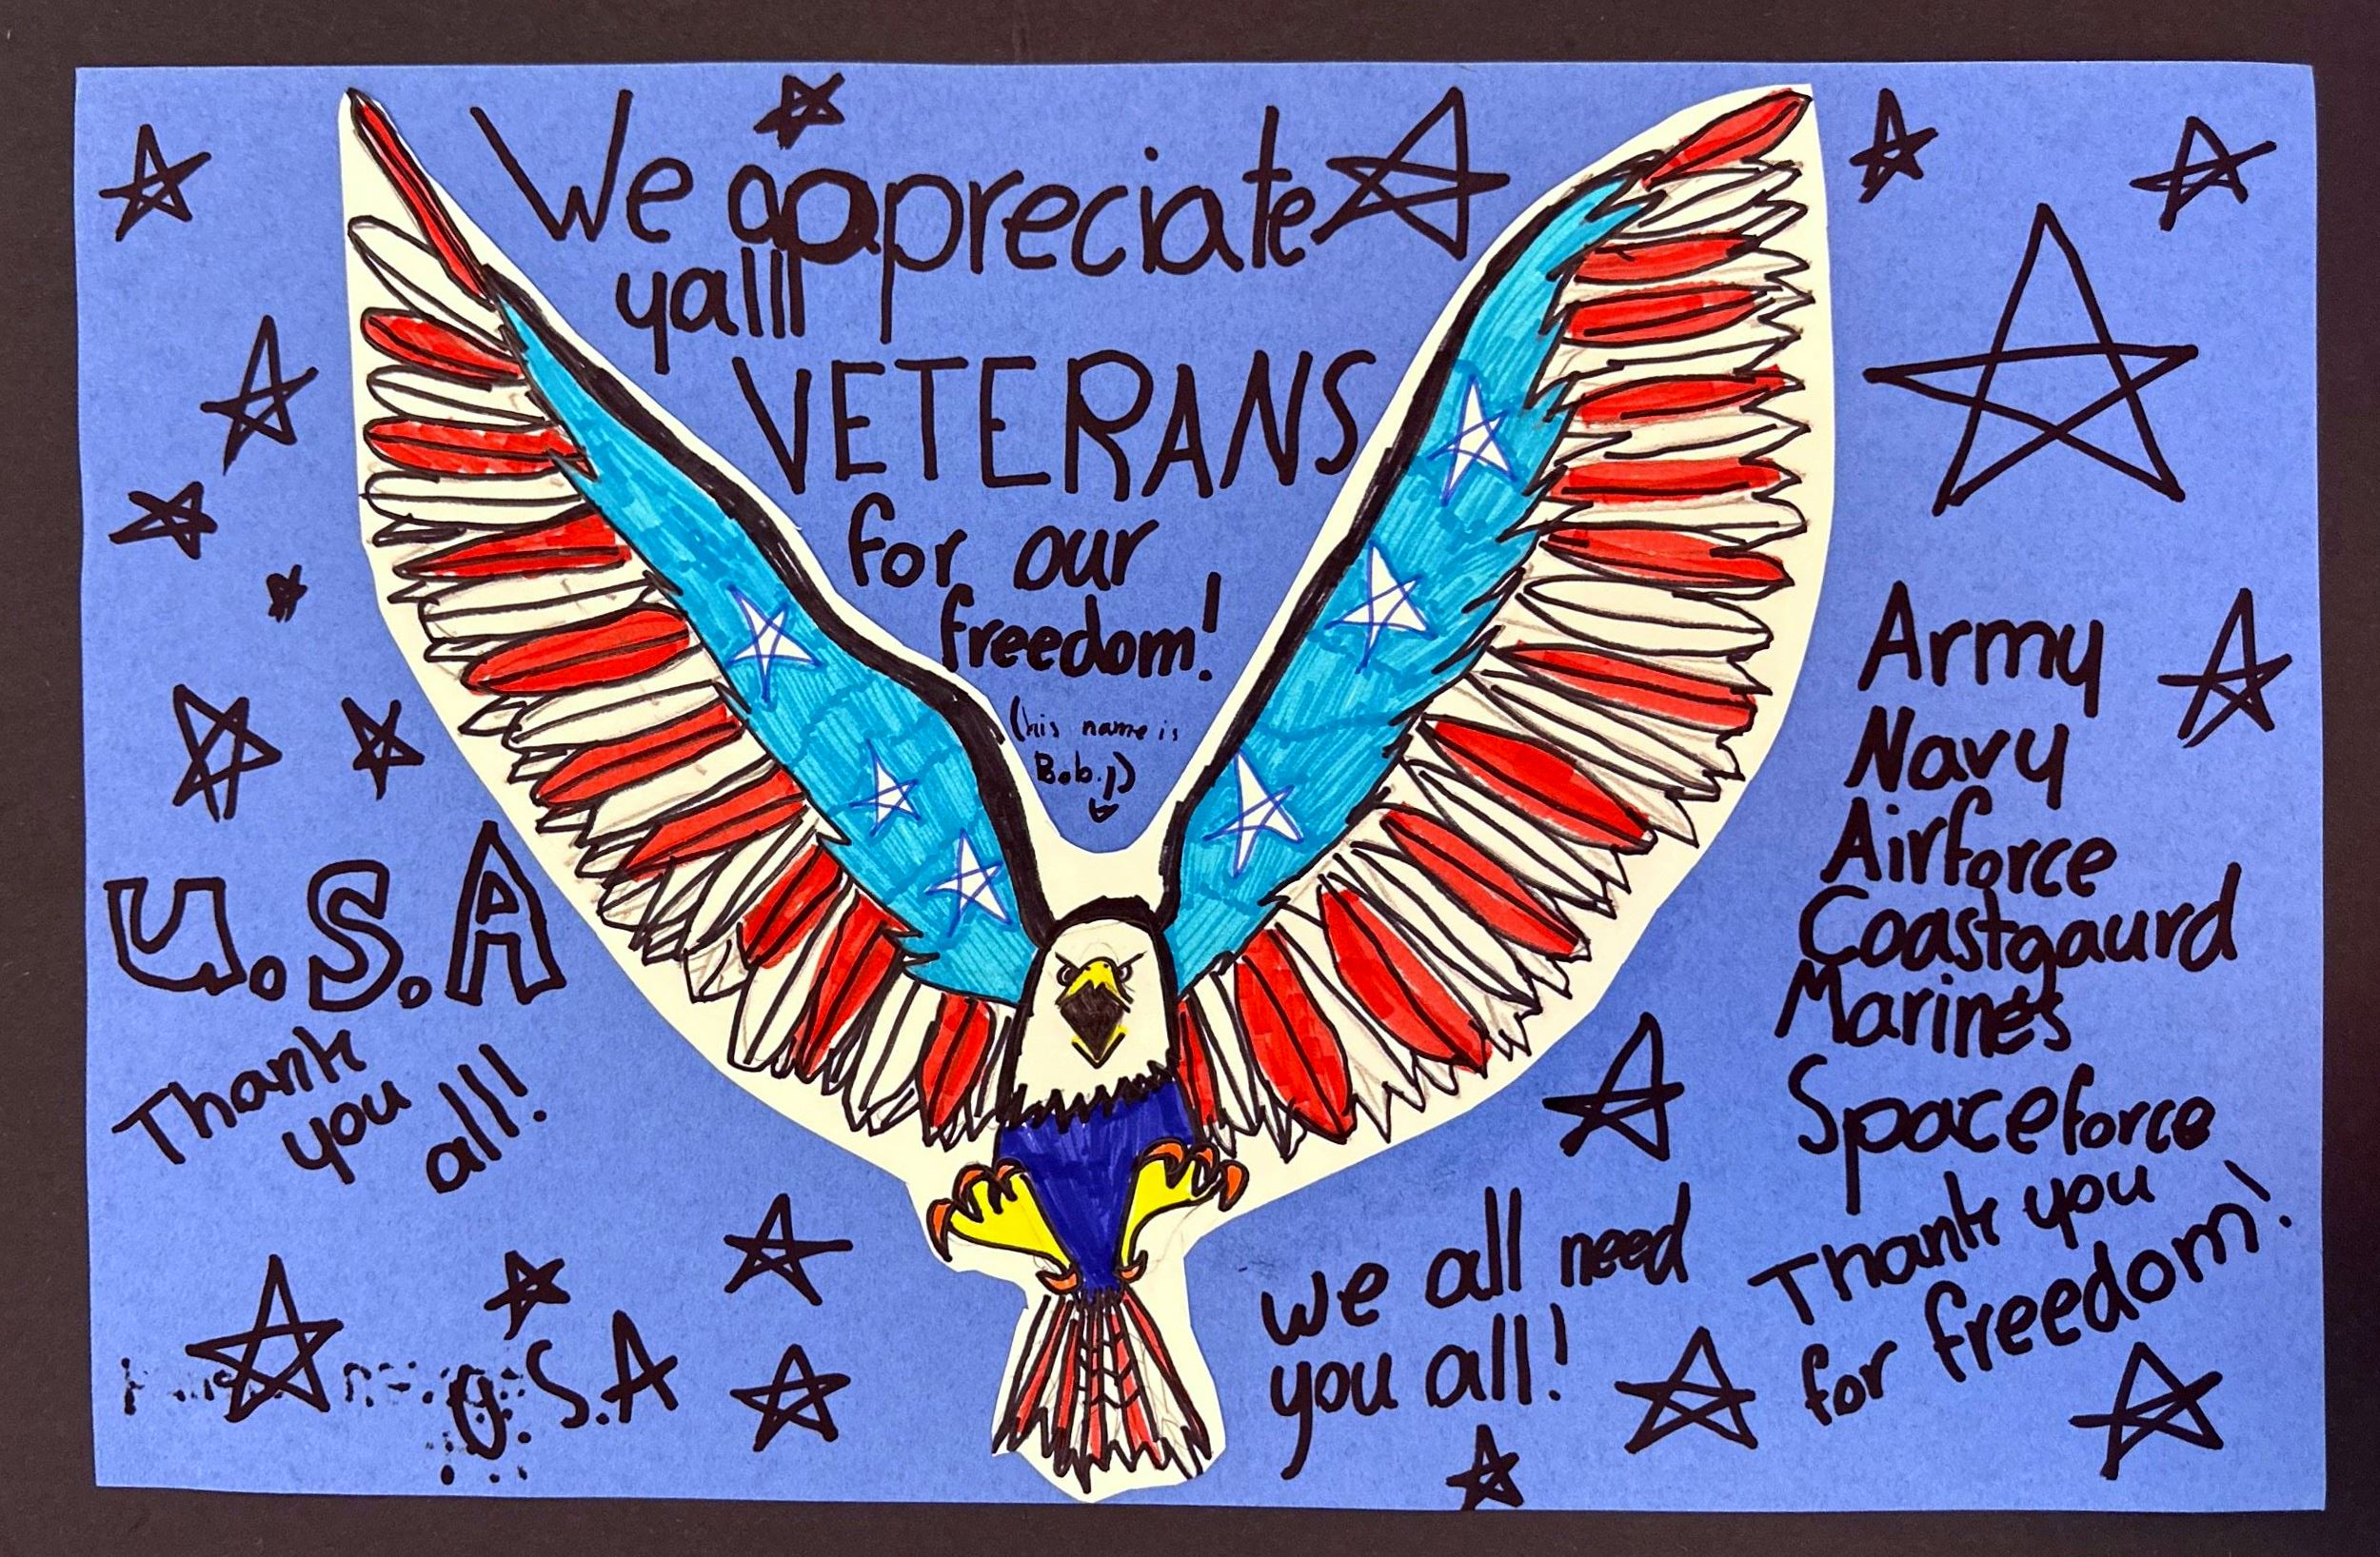 We appreciate
yalll
VETERANS
for our
freedom!
(his name is
Bob.)
U.S.A
Thank
you
all!
U.S.A
Army
Navy
Airforce
Coastgaurd
Marines
Spaceforce
Thank you
for freedom!
we all need
you all!